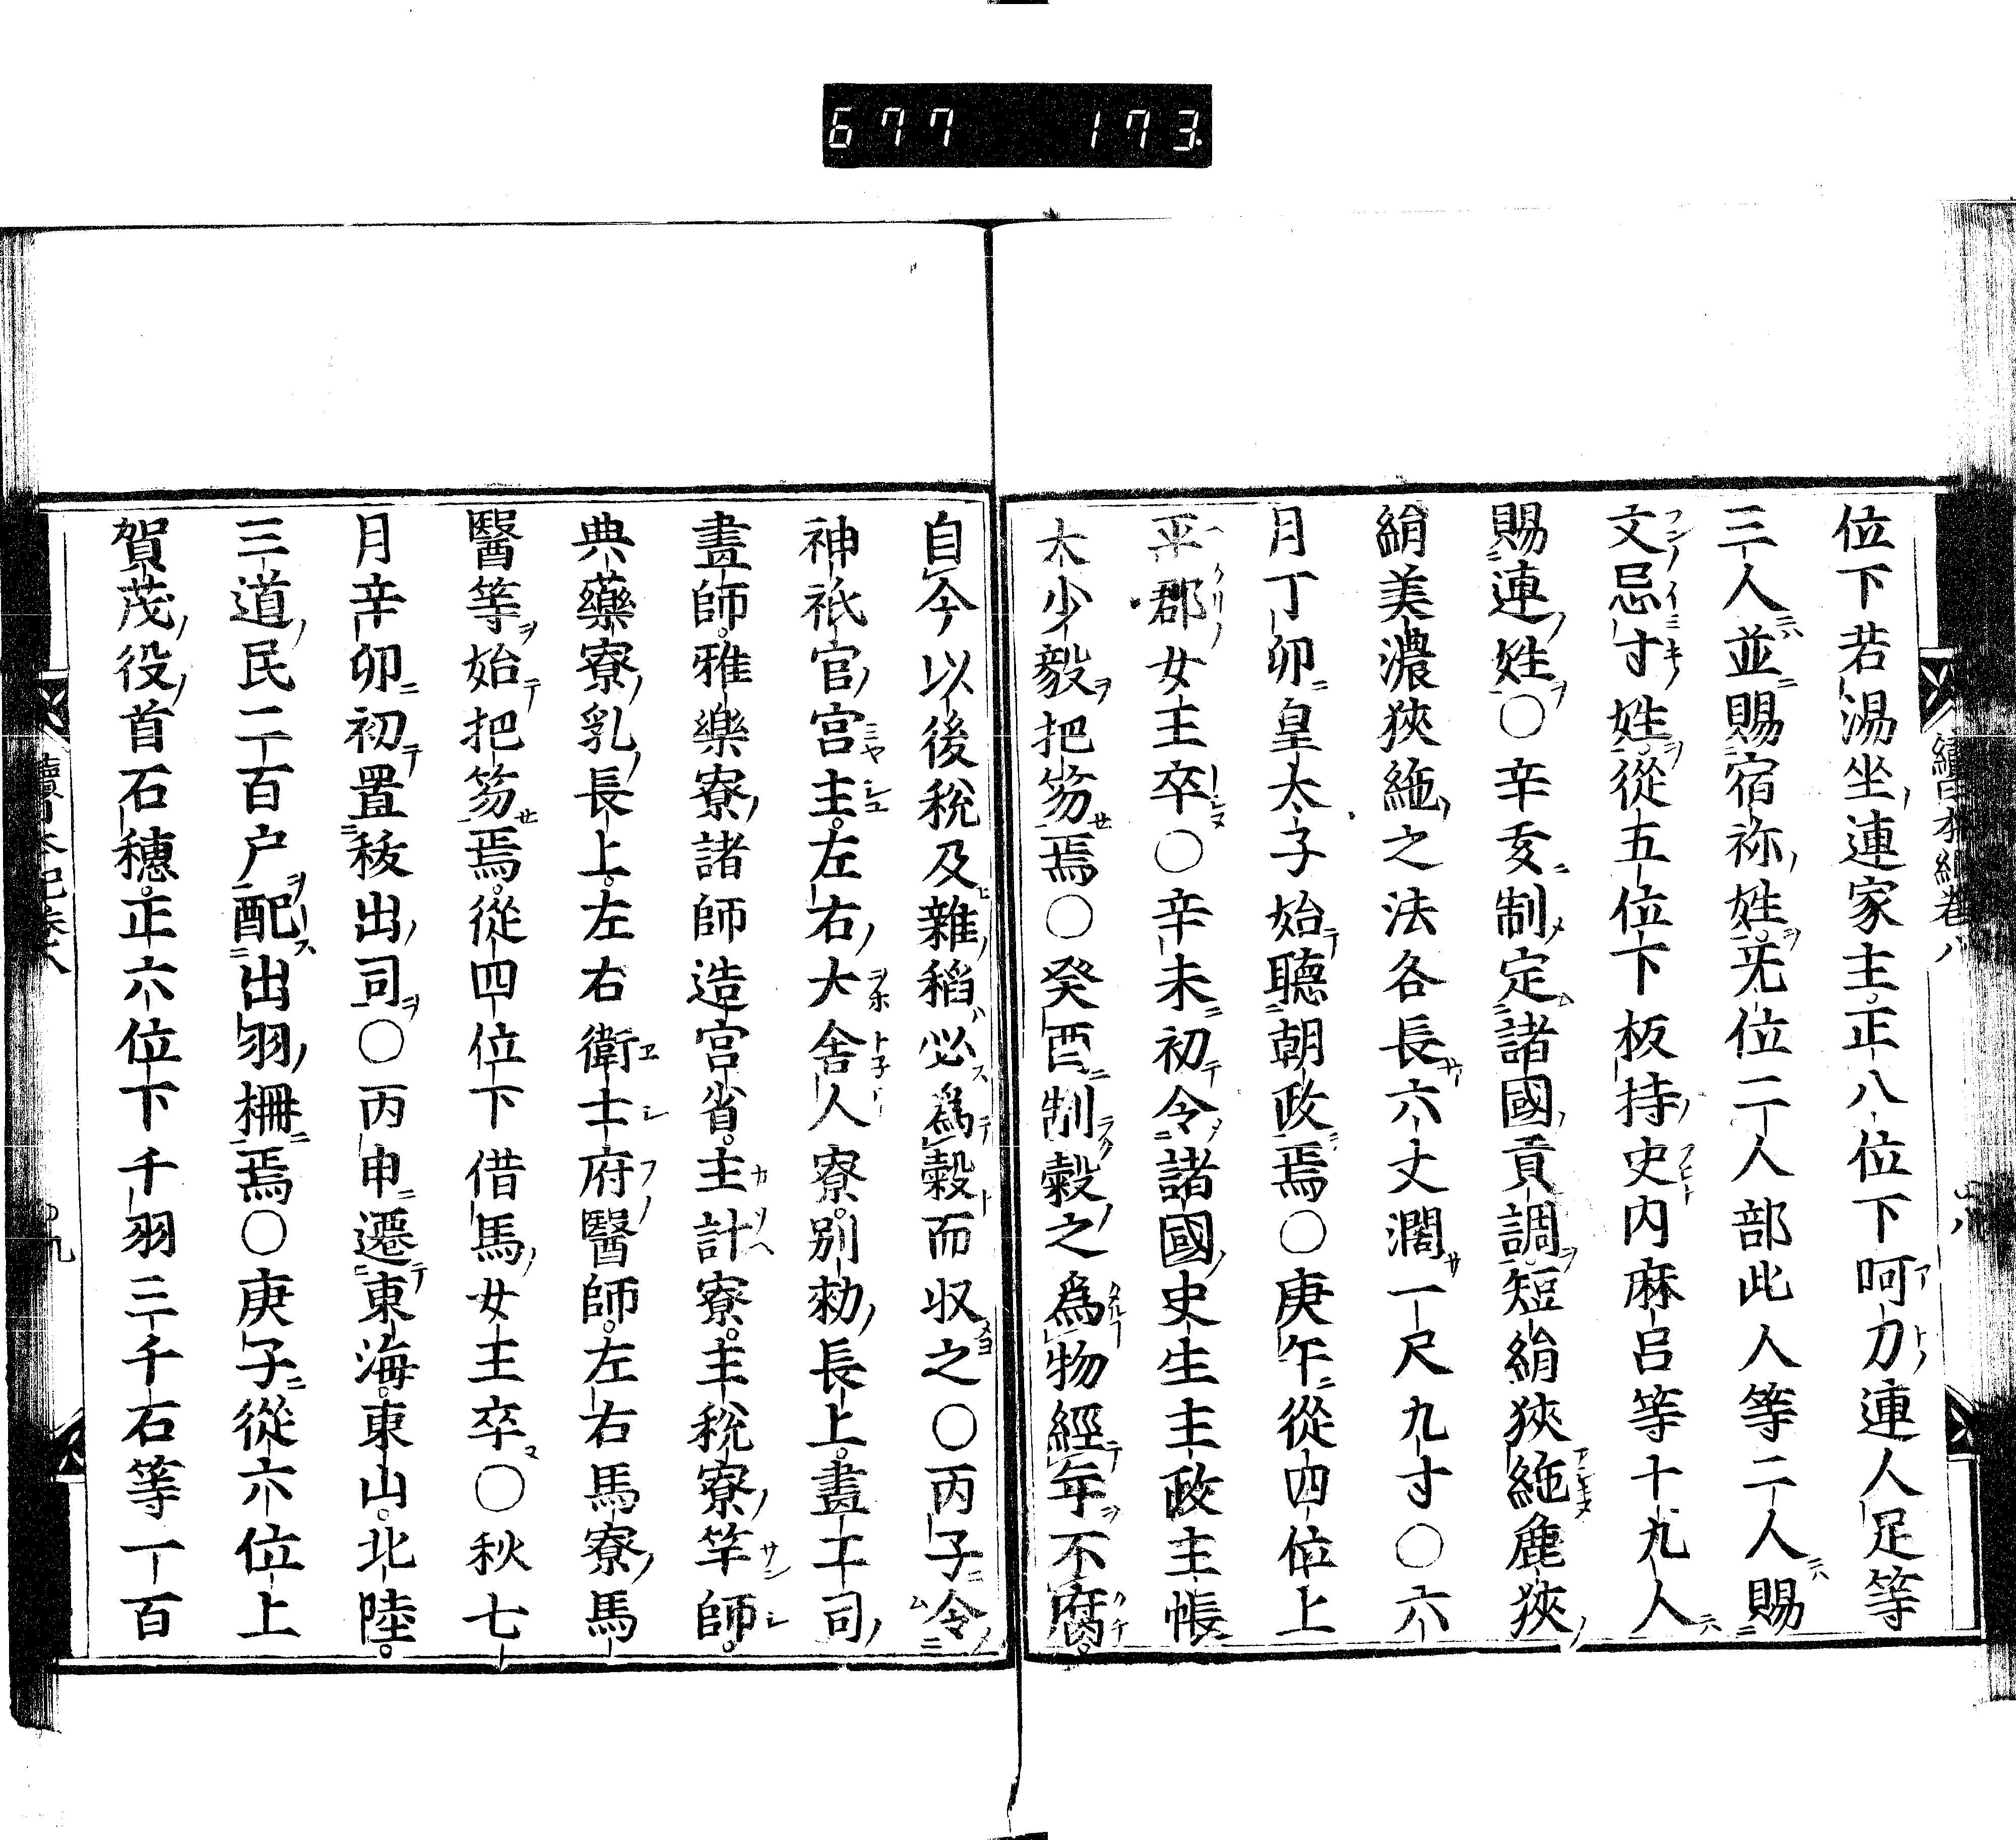 677 173
位下若湯坐連家主。正八位下呵刀連人足等
三人並賜宿祢姓。无位二人部此人等二人賜
文忌寸姓。從五位下板持史内麻呂等十九人
賜連姓○辛亥制定諸國貢調。短絹狹絁麁狹
絹美濃狹絁之法各長六丈濶一尺九寸○六
月丁卯皇太子始聽朝政焉○庚午從四位上
平郡女王卒○辛未初令諸國史生主政主帳
大少毅把笏焉○癸酉制穀之爲物經年不腐。
自今以後稅及雜稻必爲穀而収之○丙子令
神祇官宮主。左右大舍人寮。別勅長上。畫工司
畫師。雅樂寮諸師造宮省。主計寮。主稅寮竿師。
典藥寮乳長上。左右衛士府醫師。左右馬寮馬
醫等始把笏焉。從四位下借馬女王卒○秋七
月辛卯初置秡出司○丙申遷東海。東山。北陸。
三道民二百户配出羽柵焉○庚子從六位上
賀茂役首石穗。正六位下千羽三千石等一百